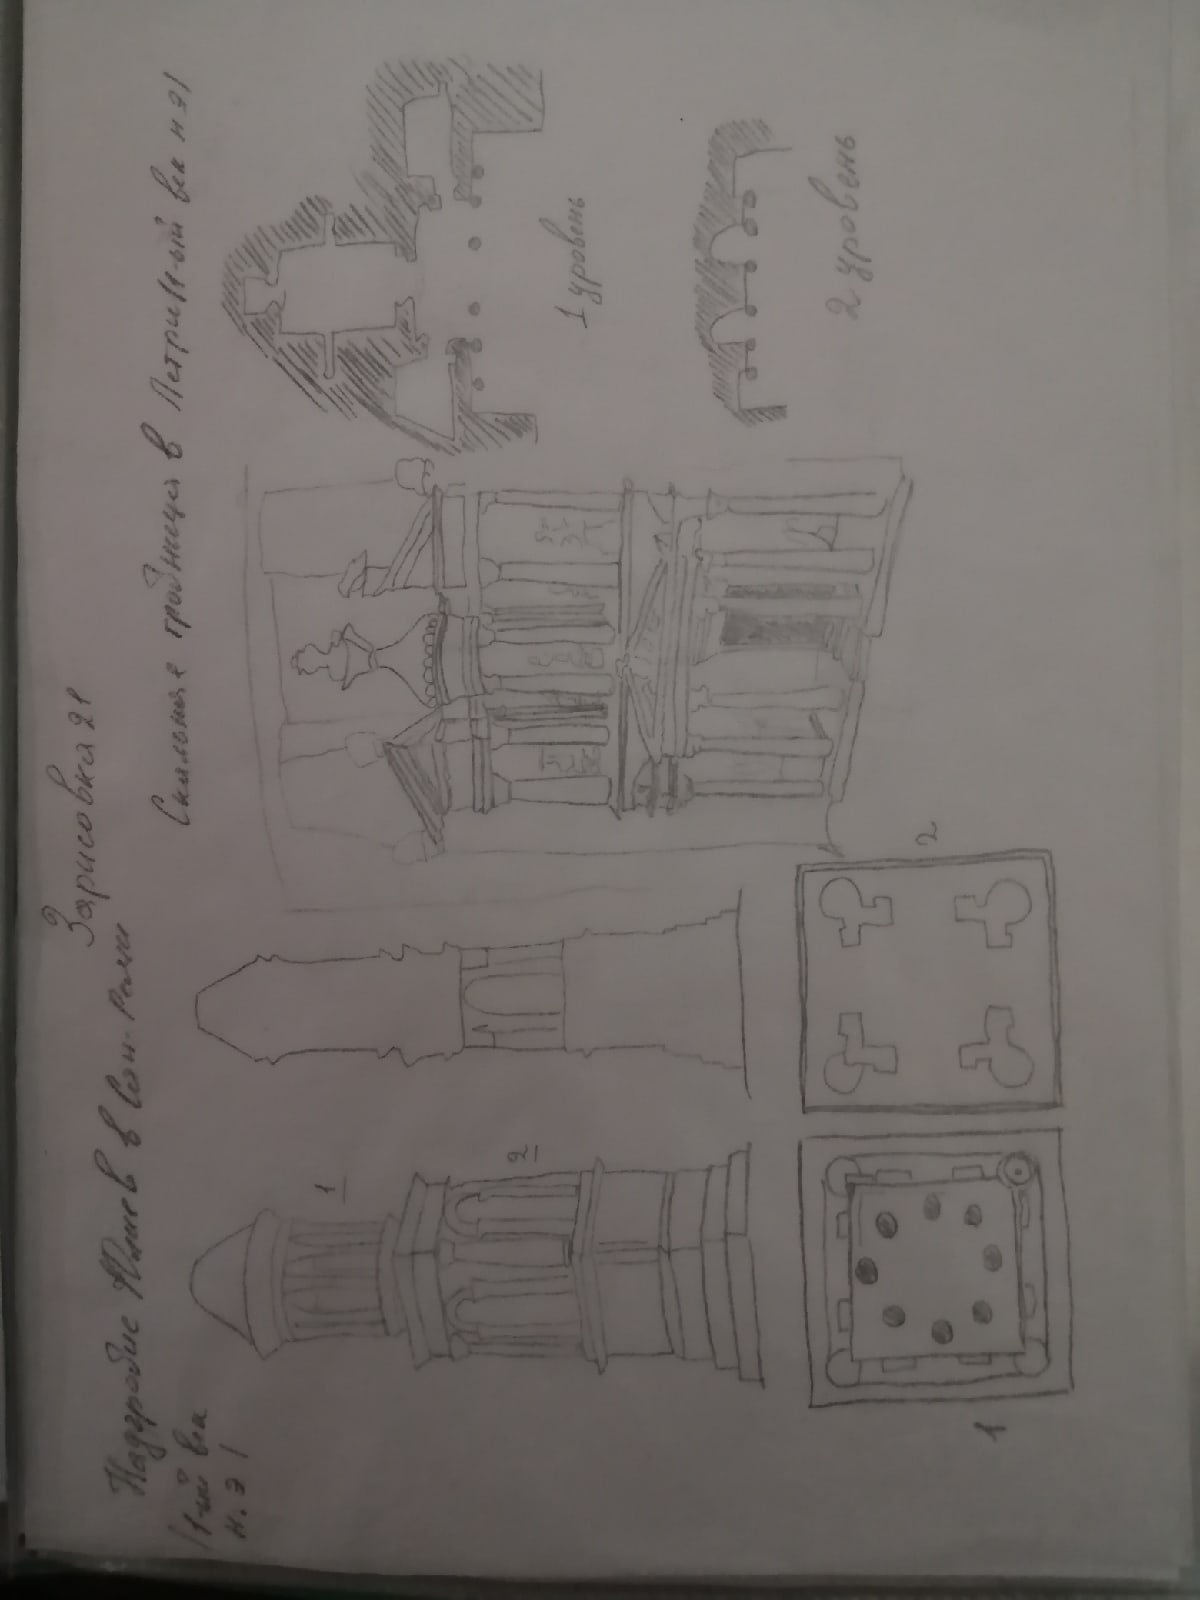 Зарисовка 21
Надгробие Юлиев в Сан-Реми
/1-ый век
н.э/
Скальная гробница в Петри/II-ый век н.э/
1
2
1
2
1 уровень
2 уровень